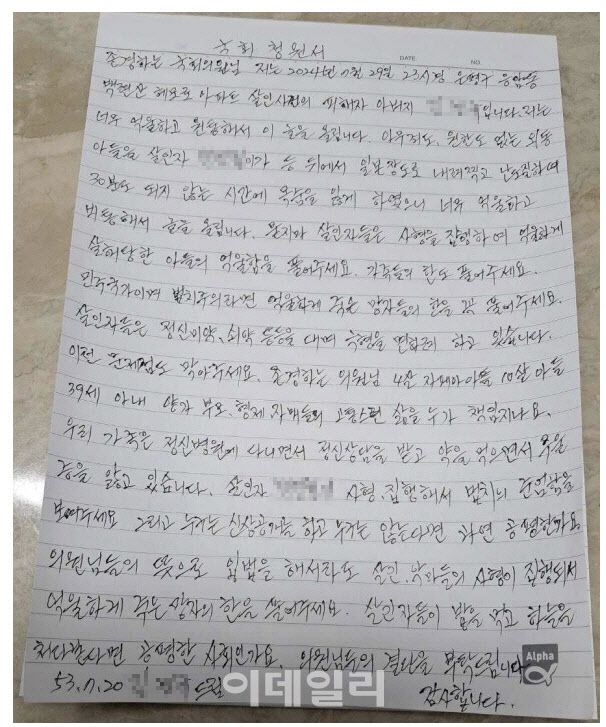 국회 청원서
DATE. NO.
존경하는 국회의원님 저는 2024년 7월 29일 23시경 은평구 응암동
백련산 헤모로 아파트 살인사건의 피해자 아버지 입니다. 저는
너무 억울하고 원통해서 이 글을 올립니다. 아무죄도, 원한도 없는 외동
아들을 살인자 이가 등 뒤에서 일본장도로 내려찍고 난도질하여
30분도 되지 않는 시간에 목숨을 잃게 하였으니 너무 억울하고
비통해서 글을 올립니다. 살인자들은 사형을 집행하여 억울하게
살해당한 아들의 억울함을 풀어주세요. 가족들의 한도 풀어주세요.
민주국가이며 법치주의라면 억울하게 죽은 망자들의 한을 꼭 풀어주세요.
살인자들은 정신미약, 심약 등등을 대며 극형을 면하려 하고 있습니다.
이런 문제점도 막아주세요. 존경하는 의원님 4살 아들 10살 아들
39세 아내 양가 부모, 형제 자매들의 고통스런 삶을 누가 책임지나요.
우리 가족은 정신병원에 다니면서 정신상담을 받고 약을 먹으면서 우울
증을 앓고 있습니다. 살인자 사형, 집행해서 법치의 준엄함을
보여주세요 그리고 누구는 신상공개를 하고 누구는 않는다면 과연 공평한가요
의원님들의 뜻으로 입법을 해서라도 살인, 악마들의 사형이 집행되서
억울하게 죽은 망자의 한을 풀어주세요. 살인자들이 밥을 먹고 하늘을
쳐다본다면 공평한 사회인가요. 의원님들의 결단을 부탁드립니다
53.7.20 드림 감사합니다.
이데일리
Alpha